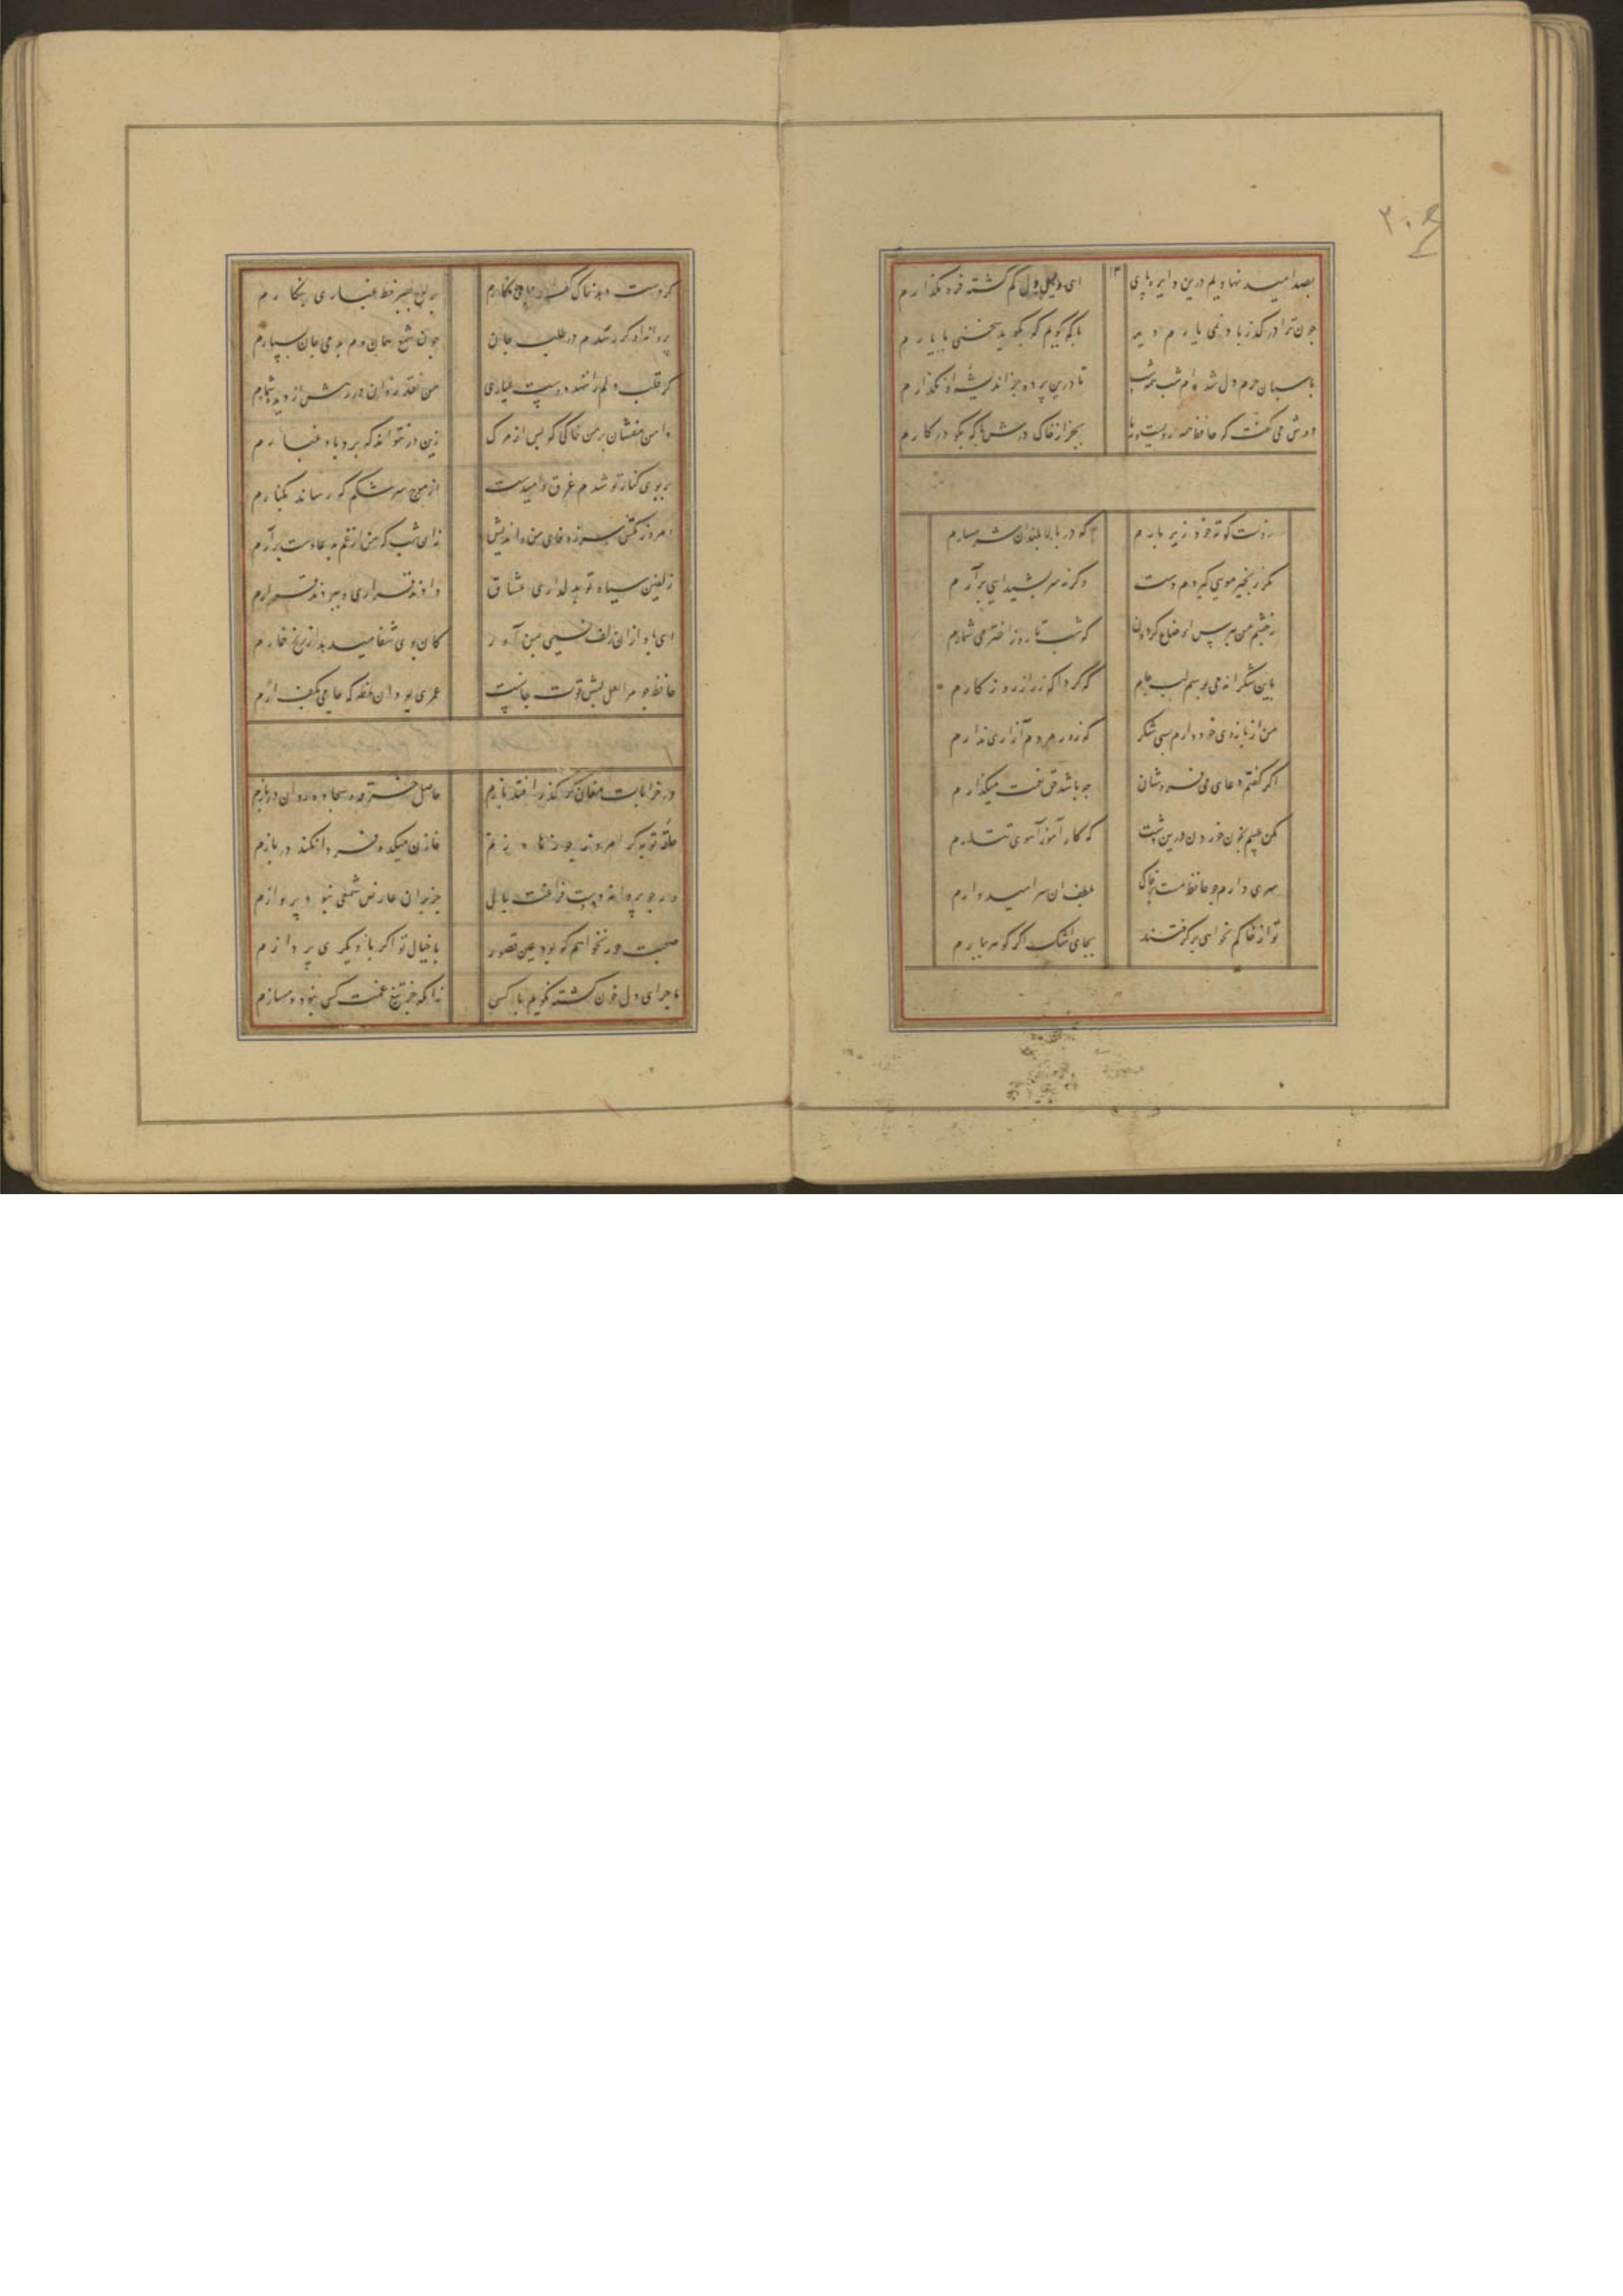 ۲۰۶
بصد امید نهادیم درین دایره پای
ای دلیل دل کم کشته فرو مگذارم
چون ترا در گذر باد نمی یارم دید
با که گویم که بگوید سخنی با یارم
پاسبان حرم دل شده‌ام شب همه شب
تا درین پرده جز اندیشه او نگذارم
دوش می گفت که حافظ همه رویست و ریا
بجز از خاک درش با که بگو در کارم
ز دست کوته خود زیر بارم
که در بالا بلندان شرمسارم
مگر زنجیر مویی گیردم دست
وگر نه سر بشیدایی برآرم
ز چشم من بپرس اوضاع گردون
که شب تا روز اختر می شمارم
باین شکرانه می بوسم لب جام
که کرد آگه ز راز روزگارم
من از بازوی خود دارم بسی شکر
که زور مردم آزاری ندارم
اگر گفتم دعای می فروشان
چه باشد حق نعمت میگذارم
مکن عیبم بخون خوردن درین دشت
که کار آموز آهوی تتارم
سری دارم چو حافظ مست لیکن
بلطف آن سر امیدوارم
تو از خاکم نخواهی برگرفتن
بجای اشک اگر گوهر ببارم
گر دست دهد خاک کف پای نگارم
بر لوح بصر خط غباری بنگارم
پروانه او گر رسدم در طلب جان
چون شمع همان دم بدمی جان بسپارم
گر قلب دلم را ننهد دوست عیاری
من نقد روان در رهش از دیده شمارم
دامن مفشان بر من خاکی که پس از مرگ
زین در نتواند که برد باد غبارم
بر بوی کنار تو شدم غرق و امیدست
از موج سرشکم که رساند بکنارم
امروز مکش سر ز وفای من و اندیش
زان شب که من از غم بدعا دست برآرم
زلفین سیاه تو بدلداری عشاق
دادند قراری و ببردند قرارم
ای باد از آن زلف نسیمی بمن آور
کان بوی شفا میدهد از رنج خمارم
حافظ چو مرا لعل لبش قوت جانست
عمری بود آن لحظه که جامی بکف آرم
در خرابات مغان گر گذر افتد بازم
حاصل خرقه و سجاده روان دربازم
حلقه توبه گر امروز چو زهاد زنم
خازن میکده فردا نکند در بازم
ور چو پروانه دهد دست فراغت بالی
جز بدان عارض شمعی نبود پروازم
صحبت حور نخواهم که بود عین قصور
با خیال تو اگر با دیگری پردازم
ماجرای دل خون گشته نگویم با کس
زانکه جز تیغ غمت کس نبود دمسازم